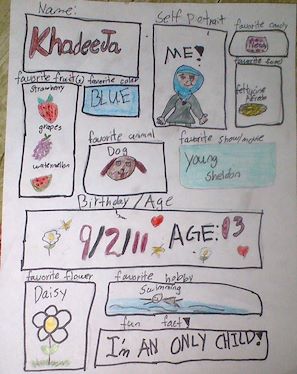 Name:
Khadeeja
Self Potrait
ME!
favorite candy
favorite food
fettucine
Alfredo
favorite fruit(s)
Strawberry
grapes
watermelon
favorite color
BLUE
favorite animal
Dog
favorite show/movie
Young
Sheldon
Birthday/Age
9/2/11 AGE: 13
favorite flower
Daisy
favorite hobby
Swimming
fun fact
I'm AN ONLY CHILD!